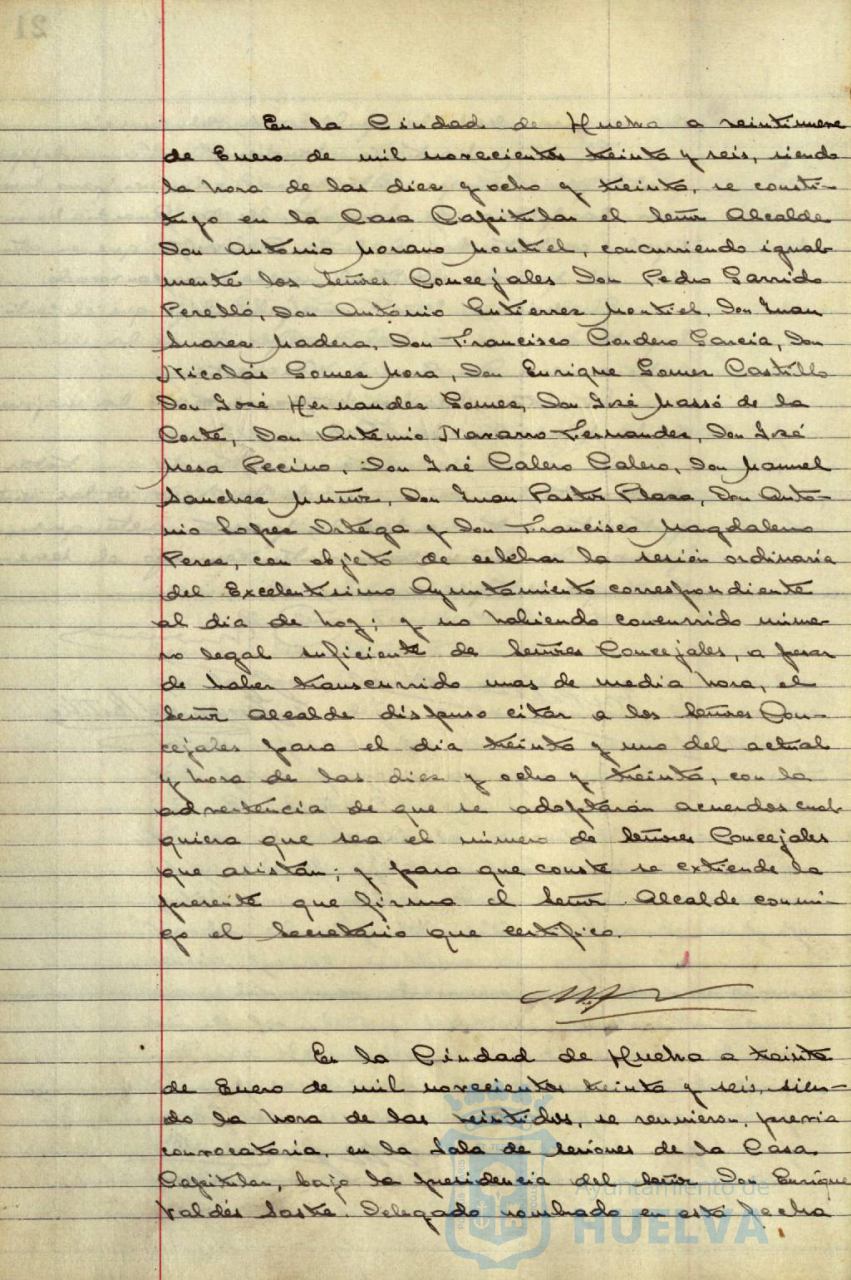 21
En la Ciudad de Huelva a veintinueve
de Enero de mil novecientos treinta y seis, siendo
la hora de las diez y ocho y treinta, se consti-
tuyó en la Casa Capitular el Señor Alcalde
Don Antonio Moreno Montiel, concurriendo igual-
mente los señores Concejales Don Pedro Garrido
Perelló, Don Antonio Gutierrez Montiel, Don Juan
Suarez Madera, Don Francisco Cordero Garcia, Don
Nicolás Gomez Mora, Don Enrique Gomez Castillo
Don José Hernandez Gomez, Don José Massó de la
Corte, Don Antonio Navarro Fernandez, Don José
Mesa Pecino, Don José Calero Calero, Don Manuel
Sanchez Muñoz, Don Juan Pastor Plaza, Don Anto-
nio Lopez Ortega y Don Francisco Magdaleno
Perez, con objeto de celebrar la sesión ordinaria
del Excelentisimo Ayuntamiento correspondiente
al dia de hoy; y no habiendo concurrido núme-
ro legal suficiente de Señores Concejales, a pesar
de haber transcurrido mas de media hora, el
Señor Alcalde dispuso citar a los Señores Con-
cejales para el dia treinta y uno del actual
y hora de las diez y ocho y treinta, con la
advertencia de que se adoptarán acuerdos cual-
quiera que sea el número de Señores Concejales
que asistan; y para que conste se extiende la
presente que firma el Señor Alcalde conmi-
go el Secretario que certifico.
En la Ciudad de Huelva a treinta
de Enero de mil novecientos treinta y seis, sien-
do la hora de las veintidos, se reunieron, previa
convocatoria, en la Sala de sesiones de la Casa
Capitular, bajo la presidencia del Señor Don Enrique
Valdés Delegado nombrado en esta fecha
Ayuntamiento de
HUELVA